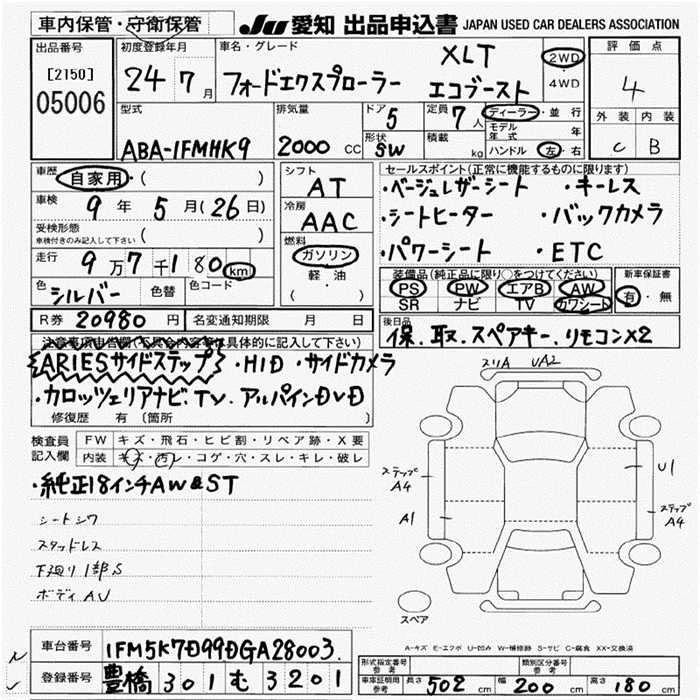 車内保管・守衛保管 JU 愛知 出品申込書 JAPAN USED CAR DEALERS ASSOCIATION
出品番号 [2150] 05006
初度登録年月 24 7月
車名・グレード フォードエクスプローラー XLT エコブースト
2WD・4WD
評価点 4
外装 内装
C B
型式 ABA-1FMHK9
排気量 2000 CC
ドア 5
形状 SW
定員 7人
積載 kg
ディーラー・並行
モデル年式 年
ハンドル 左・右
車歴 自家用・( )
車検 9年 5月(26日)
受検形態 車検付きのみ記入して下さい ( )
走行 9万7千180 km
色 シルバー 色替 色コード
R券 20980円 名変通知期限 月 日
シフト AT
冷房 AAC
燃料 ガソリン 軽・油 ( )
セールスポイント(正常に機能するものに限ります)
・ベージュレザーシート ・キーレス
・シートヒーター ・バックカメラ
・パワーシート ・ETC
装備品(純正品に限り○をつけてください) 新車保証書
PS PW エアB AW 有・無
SR ナビ TV カワシート
後日品 保、取、スペアキー、リモコンX2
注意事項申告欄(不具合内容等は具体的に記入して下さい)
ARIESサイドステップ ・HID ・サイドカメラ
・カロッツェリアナビ、TV、アルパインDVD
修復歴 有 (箇所 )
検査員記入欄 FW キズ・飛石・ヒビ割・リペア跡・X要
内装 キズ・汚レ・コゲ・穴・スレ・キレ・破レ
・純正18インチAW&ST
シートシワ
スタッドレス
下廻り1部S
ボディAU
スリA UA2
ステップA4
A1
U1
ステップA4
スペア
A-キズ E-エクボ U-凹み W-補修跡 S-サビ C-腐食 XX-交換済
車台番号 1FM5K7D99DGA28003.
登録番号 豊橋 301 む 3201
形式指定番号 参考 類別区分番号 参考
車庫証明用参考 長さ 502 cm 幅 200 cm 高さ 180 cm